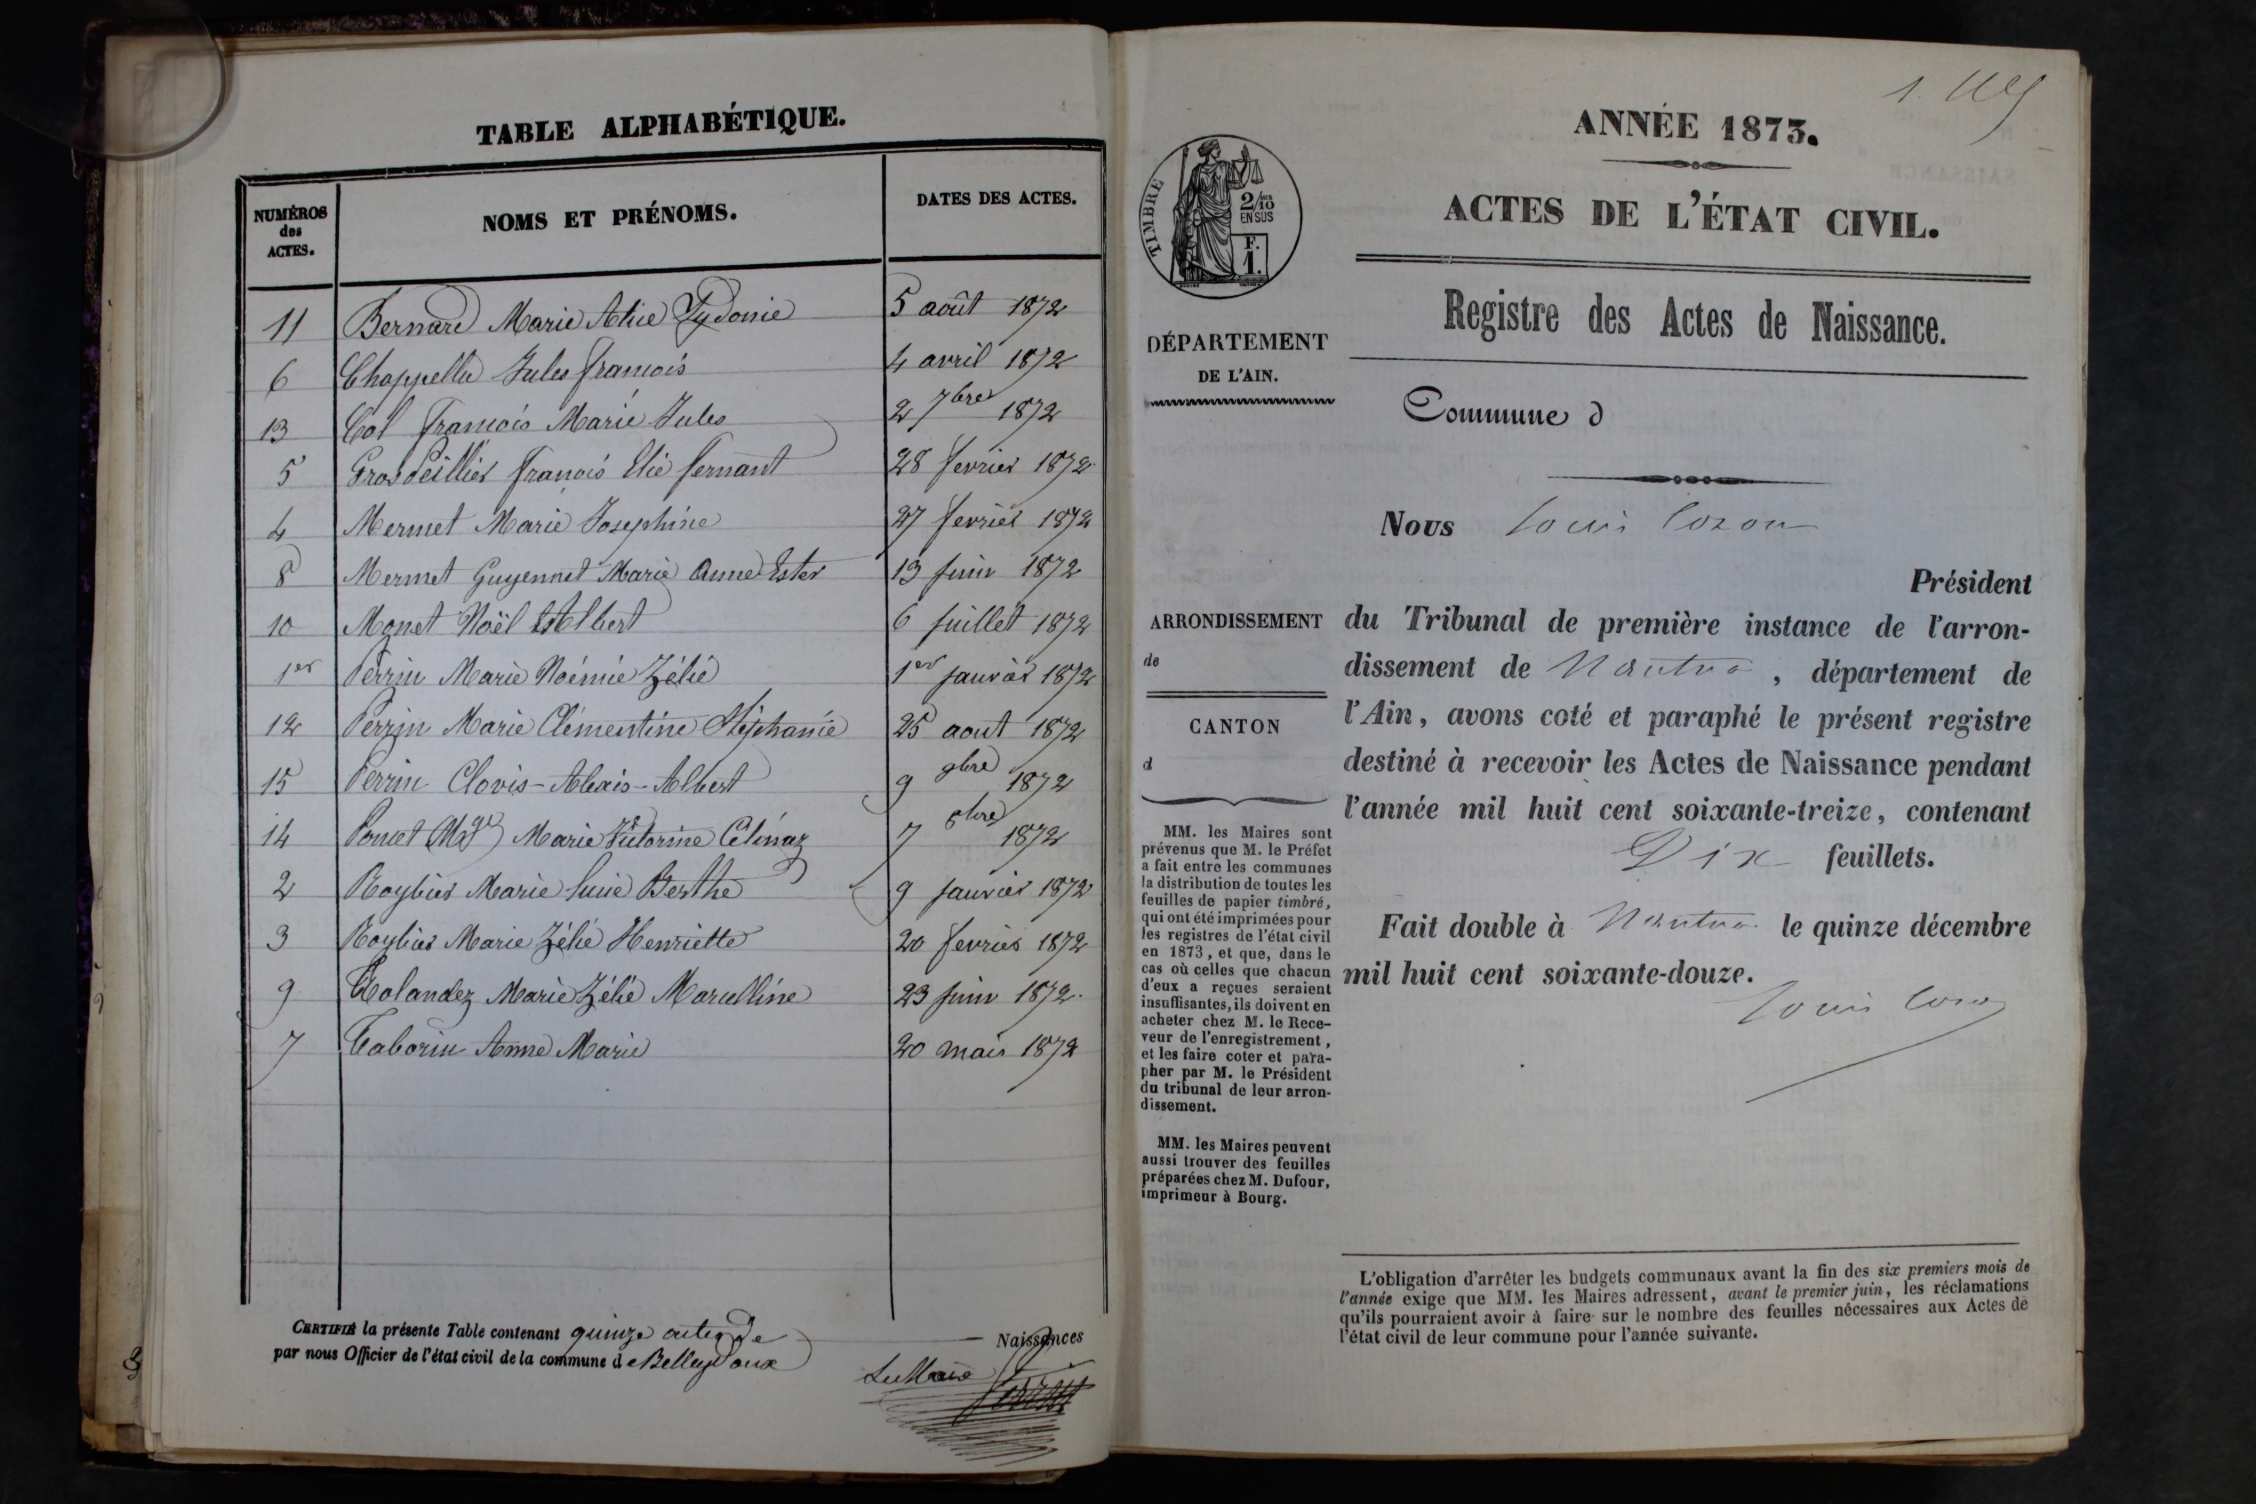 TABLE ALPHABÉTIQUE.
NUMÉROS des ACTES. NOMS ET PRÉNOMS. DATES DES ACTES.
11 Bernard Marie Alice Sydonie 5 août 1872
6 Chappellu Jules françois 4 avril 1872
13 Col françois Marie Jules 2 7bre 1872
5 Grosfeillier françois Elie fernant 28 fevrier 1872
4 Mermet Marie Josephine 27 fevrier 1872
8 Mermet Guyennet Marie Anne Ester 13 juin 1872
10 Monet Noël Albert 6 juillet 1872
1er Perrin Marie Noémie Zélié 1er janvier 1872
12 Perrin Marie Clémentine Stéphanie 25 aout 1872
15 Perrin Clovis-Alexis-Albert 9 9bre 1872
14 Poncet Marie Victorine Célinaz 7 8bre 1872
2 Roybier Marie Lucie Berthe 9 janvier 1872
3 Roybier Marie Zélié Henriette 20 fevrier 1872
9 Rolandez Marie Zélié Marcelline 23 juin 1872.
7 Taborin Anne Marie 20 mais 1872
CERTIFIÉ la présente Table contenant quinze actes de Naissances
par nous Officier de l'état civil de la commune de Belleydoux
Le Maire
1.
ANNÉE 1873.
ACTES DE L'ÉTAT CIVIL.
Registre des Actes de Naissance.
TIMBRE
2/10 EN SUS
F. 1.
DÉPARTEMENT
DE L'AIN.
ARRONDISSEMENT
de
CANTON
d
MM. les Maires sont
prévenus que M. le Préfet
a fait entre les communes
la distribution de toutes les
feuilles de papier timbré,
qui ont été imprimées pour
les registres de l'état civil
en 1873, et que, dans le
cas où celles que chacun
d'eux a reçues seraient
insuffisantes, ils doivent en
acheter chez M. le Rece-
veur de l'enregistrement,
et les faire coter et para-
pher par M. le Président
du tribunal de leur arron-
dissement.
MM. les Maires peuvent
aussi trouver des feuilles
préparées chez M. Dufour,
imprimeur à Bourg.
Commune d
Nous Louis Cozon
Président
du Tribunal de première instance de l'arron-
dissement de Nantua, département de
l'Ain, avons coté et paraphé le présent registre
destiné à recevoir les Actes de Naissance pendant
l'année mil huit cent soixante-treize, contenant
Dix feuillets.
Fait double à Nantua le quinze décembre
mil huit cent soixante-douze.
Louis Cozon
L'obligation d'arrêter les budgets communaux avant la fin des six premiers mois de
l'année exige que MM. les Maires adressent, avant le premier juin, les réclamations
qu'ils pourraient avoir à faire sur le nombre des feuilles nécessaires aux Actes de
l'état civil de leur commune pour l'année suivante.